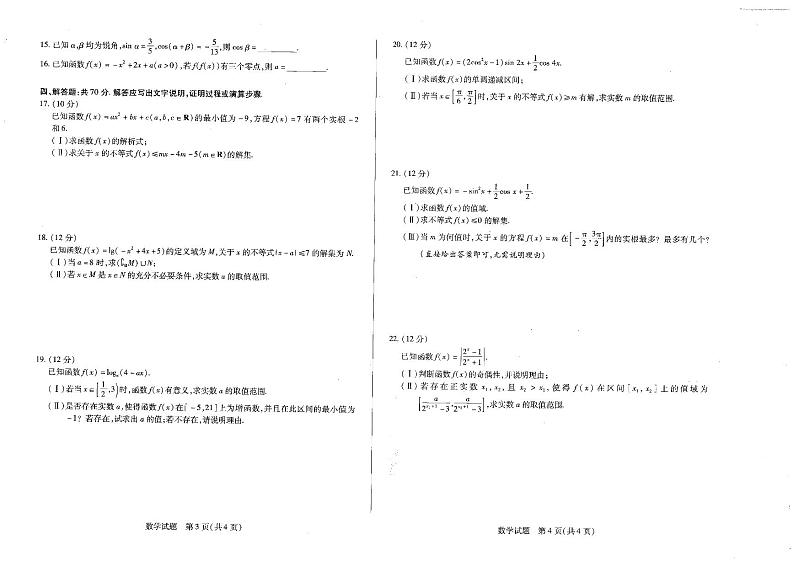 15. 已知 α,β 均为锐角,sin α = 3/5, cos(α+β) = -5/13, 则 cos β = ________.
16. 已知函数 f(x) = -x²+2x+a(a>0), 若 f(f(x)) 有三个零点, 则 a = ________.
四、解答题:共 70 分. 解答应写出文字说明,证明过程或演算步骤.
17. (10 分)
已知函数 f(x) = ax²+bx+c(a,b,c∈R) 的最小值为 -9, 方程 f(x) = 7 有两个实根 -2
和 6.
(Ⅰ)求函数 f(x) 的解析式;
(Ⅱ)求关于 x 的不等式 f(x) ≤ mx-4m-5(m∈R) 的解集.
18. (12 分)
已知函数 f(x) = lg(-x²+4x+5) 的定义域为 M, 关于 x 的不等式 |x-a| ≤ 7 的解集为 N.
(Ⅰ)当 a=8 时, 求 (∁RM)∪N;
(Ⅱ)若 x∈M 是 x∈N 的充分不必要条件, 求实数 a 的取值范围.
19. (12 分)
已知函数 f(x) = logₐ(4-ax).
(Ⅰ)若当 x∈[1/2,3] 时, 函数 f(x) 有意义, 求实数 a 的取值范围.
(Ⅱ)是否存在实数 a, 使得函数 f(x) 在 [-5,21] 上为增函数, 并且在此区间的最小值为
-1? 若存在, 试求出 a 的值; 若不存在, 请说明理由.
数学试题 第 3 页(共 4 页)
20. (12 分)
已知函数 f(x) = (2cos²x-1)sin 2x + 1/2 cos 4x.
(Ⅰ)求函数 f(x) 的单调递减区间;
(Ⅱ)若当 x∈[π/6, π/2] 时, 关于 x 的不等式 f(x) ≥ m 有解, 求实数 m 的取值范围.
21. (12 分)
已知函数 f(x) = -sin²x + 1/2 cos x + 1/2.
(Ⅰ)求函数 f(x) 的值域.
(Ⅱ)求不等式 f(x) ≤ 0 的解集.
(Ⅲ)当 m 为何值时, 关于 x 的方程 f(x) = m 在 [-π/2, 3π/2] 内的实根最多? 最多有几个?
(直接给出答案即可,无需说明理由)
22. (12 分)
已知函数 f(x) = |(2ˣ-1)/(2ˣ+1)|.
(Ⅰ)判断函数 f(x) 的奇偶性, 并说明理由;
(Ⅱ)若存在正实数 x₁, x₂, 且 x₂ > x₁, 使得 f(x) 在区间 [x₁, x₂] 上的值域为
[a/(2^(x₂+1)-3), a/(2^(x₁+1)-3)], 求实数 a 的取值范围.
数学试题 第 4 页(共 4 页)